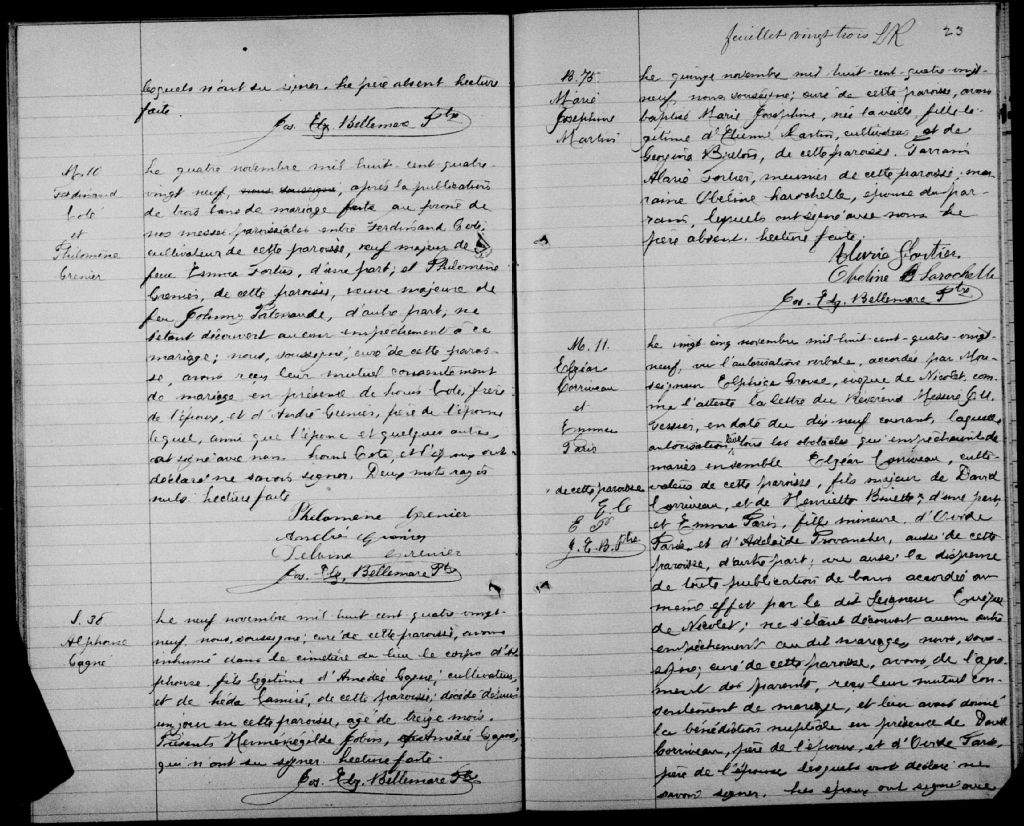 lesquels n'ont su signer. Le père absent Lecture
faite.
Jos. Elz. Bellemare Ptre
M. 10
Ferdinand
Cote
et
Philomène
Grenier
Le quatre novembre mil huit cent quatre-
vingt neuf, nous soussigné, après la publication
de trois bans de mariage faite au prône de
nos messes paroissiales entre Ferdinand Cote,
cultivateur de cette paroisse, veuf majeur de
feu Emma Fortier, d'une part; et Philomène
Grenier, de cette paroisse, veuve majeure de
feu Johnny, d'autre part, ne
s'étant découvert aucun empêchement à ce
mariage; nous, soussigné, curé de cette parois-
se, avons reçu leur mutuel consentement
de mariage en présence de Louis Cote, frère
de l'époux, et d'André Grenier, père de l'épouse
lequel, ainsi que l'épouse et quelques autres,
ont signé avec nous. Louis Cote, et l'époux ont
déclaré ne savoir signer. Deux mots rayés
nuls. Lecture faite
Philomène Grenier
André Grenier
Delvina Grenier
Jos. Elz. Bellemare Ptre
S. 38
Alphonse
Gagné
Le neuf novembre mil huit cent quatre-vingt-
neuf, nous, soussigné, curé de cette paroisse, avons
inhumé dans le cimetière du lieu le corps d'Al-
phonse, fils légitime d'Amédée Gagné, cultivateur,
et de Léda Camiré, de cette paroisse, décédé depuis
un jour en cette paroisse, agé de treize mois.
Présents Herménégilde Jobin, Amédée Gagné,
qui n'ont su signer. Lecture faite.
Jos. Elz. Bellemare Ptre
feuillet vingt trois LR 23
B. 75
Marie
Joséphine
Martin
Le quinze novembre mil huit-cent-quatre-vingt-
neuf, nous, soussigné, curé de cette paroisse, avons
baptisé Marie Joséphine, née la veille, fille lé-
gitime d'Etienne Martin, cultivateur, et de
Georgina Breton, de cette paroisse. Parrain
Alarie Fortier, meunier de cette paroisse; mar-
raine Obeline Larochelle, épouse du par-
rain, lesquels ont signé avec nous. Le
père absent. Lecture faite.
Fortier
Obeline B Larochelle
Jos. Elz. Bellemare Ptre
M. 11.
Elzéar
Corriveau
et
Emma
Paris
de cette paroisse
E. C.
E P
J. E. B. Ptre
Le vingt cinq novembre mil-huit-cent-quatre-vingt-
neuf, vu l'autorisation verbale, accordée par Mon-
seigneur Elphège Gravel, évêque de Nicolet, com-
me l'atteste la lettre du Révérend Messire
en date du dix neuf courant, laquelle
autorisation lève tous les obstacles qui empêchaient de
mariés ensemble Elzéar Corriveau, culti-
vateur de cette paroisse, fils majeur de David
Corriveau, et de Henriette, d'une part,
et Emma Paris, fille mineure d'Ovide
Paris et d'Adelaïde Provancher, aussi de cette
paroisse, d'autre part; vu aussi la dispense
de toute publication de bans accordée au
même effet par le dit Seigneur Evêque
de Nicolet; ne s'étant découvert aucun autre
empêchement au dit mariage, nous, sous-
signé, curé de cette paroisse, avons, de l'agré-
ment des parents, reçu leur mutuel con-
sentement de mariage, et leur avons donné
la bénédiction nuptiale en présence de David
Corriveau, père de l'époux, et d'Ovide Paris,
père de l'épouse lesquels ont déclaré ne
savoir signer. Les époux ont signé avec